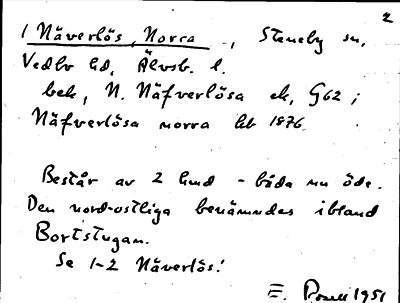 2
1 Näverlös, Norra ., Steneby sn,
Vedbo hd, Älvsb. l.
bek, N. Näfverlösa ek, G62;
Näfverlösa norra kb 1876
Består av 2 hmd - båda nu öde.
Den nord-ostliga benämndes ibland
Bortstugan.
Se 1-2 Näverlös!
E. 1951